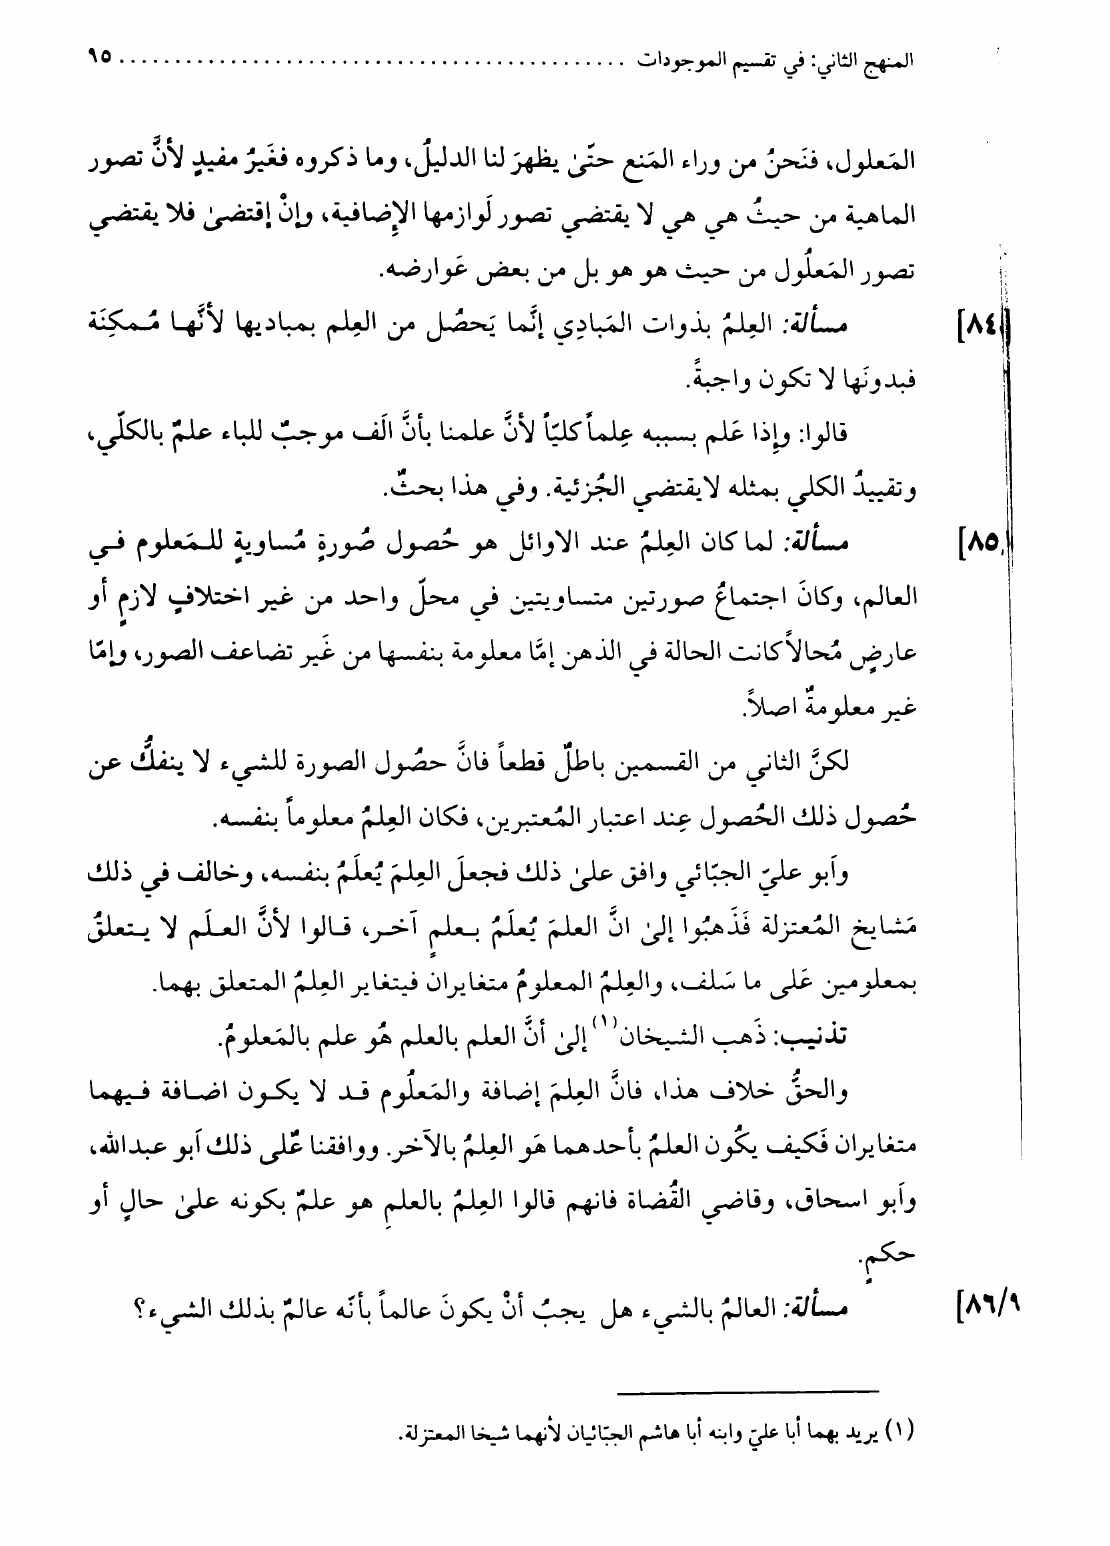 المنهج الثاني: في تقسيم الموجودات ............................................. ٩٥
المَعلول، فنَحنُ من وراء المَنع حتّىٰ يظهرَ لنا الدليلُ، وما ذكروه فغَيرُ مفيدٍ لأنَّ تصور
الماهية من حيثُ هي هي لا يقتضي تصور لَوازمها الاِضافية، وإنْ إقتضىٰ فلا يقتضي
تصور المَعلُول من حيث هو هو بل من بعض عَوارضه.
٨٤] مسألة: العِلمُ بذوات المَبادِي إنَّما يَحصُل من العِلم بمباديها لأنَّها مُمكِنَة
فبدونَها لا تكون واجبةً.
قالوا: وإِذا عَلم بسببه عِلماً كليّاً لأنَّ علمنا بأنَّ الَف موجبٌ للباء علمٌ بالكلّي،
وتقييدُ الكلي بمثله لايقتضي الجُزئية. وفي هذا بحثٌ.
٨٥] مسألة: لما كان العِلمُ عند الاوائل هو حُصول صُورةٍ مُساويةٍ للمَعلوم في
العالم، وكانَ اجتماعُ صورتين متساويتين في محلّ واحد من غير اختلافٍ لازمٍ أو
عارضٍ مُحالاً كانت الحالة في الذهن إمَّا معلومة بنفسها من غَير تضاعف الصور، وإمّا
غير معلومةٌ اصلاً.
لكنَّ الثاني من القسمين باطلٌ قطعاً فانَّ حصُول الصورة للشيء لا ينفكُّ عن
حُصول ذلك الحُصول عِند اعتبار المُعتبرين، فكان العِلمُ معلوماً بنفسه.
وأبو عليّ الجبّائي وافق علىٰ ذلك فجعلَ العِلمَ يُعلَمُ بنفسه، وخالف في ذلك
مَشايخ المُعتزلة فَذَهبُوا إلىٰ انَّ العلمَ يُعلَمُ بعلمٍ آخر، قالوا لأنَّ العلَم لا يتعلقُ
بمعلومين عَلى ما سَلف، والعِلمُ المعلومُ متغايران فيتغاير العِلمُ المتعلق بهما.
تذنيب: ذَهب الشيخان(١) إلىٰ أنَّ العلم بالعلم هُو علم بالمَعلومُ.
والحقُّ خلاف هذا، فانَّ العِلمَ إضافة والمَعلُوم قد لا يكون اضافة فيهما
متغايران فَكيف يكُون العلمُ بأحدهما هَو العِلمُ بالآخر. ووافقنا عٌلى ذلك أبو عبدالله،
وأبو اسحاق، وقاضي القُضاة فانهم قالوا العِلمُ بالعلمِ هو علمٌ بكونه علىٰ حالٍ أو
حكمٍ.
٨٦/٩] مسألة: العالمُ بالشيء هل يجبُ أنْ يكونَ عالماً بأنّه عالمٌ بذلك الشيء؟
(١) يريد بهما أبا عليّ وابنه أبا هاشم الجبّائيان لأنهما شيخا المعتزلة.